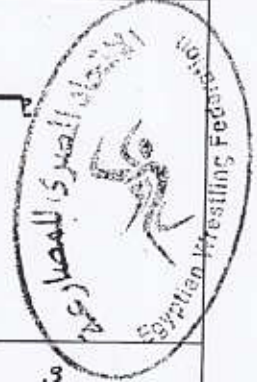 الاتحاد المصرى للمصارعة
Egyptian Wrestling Federation